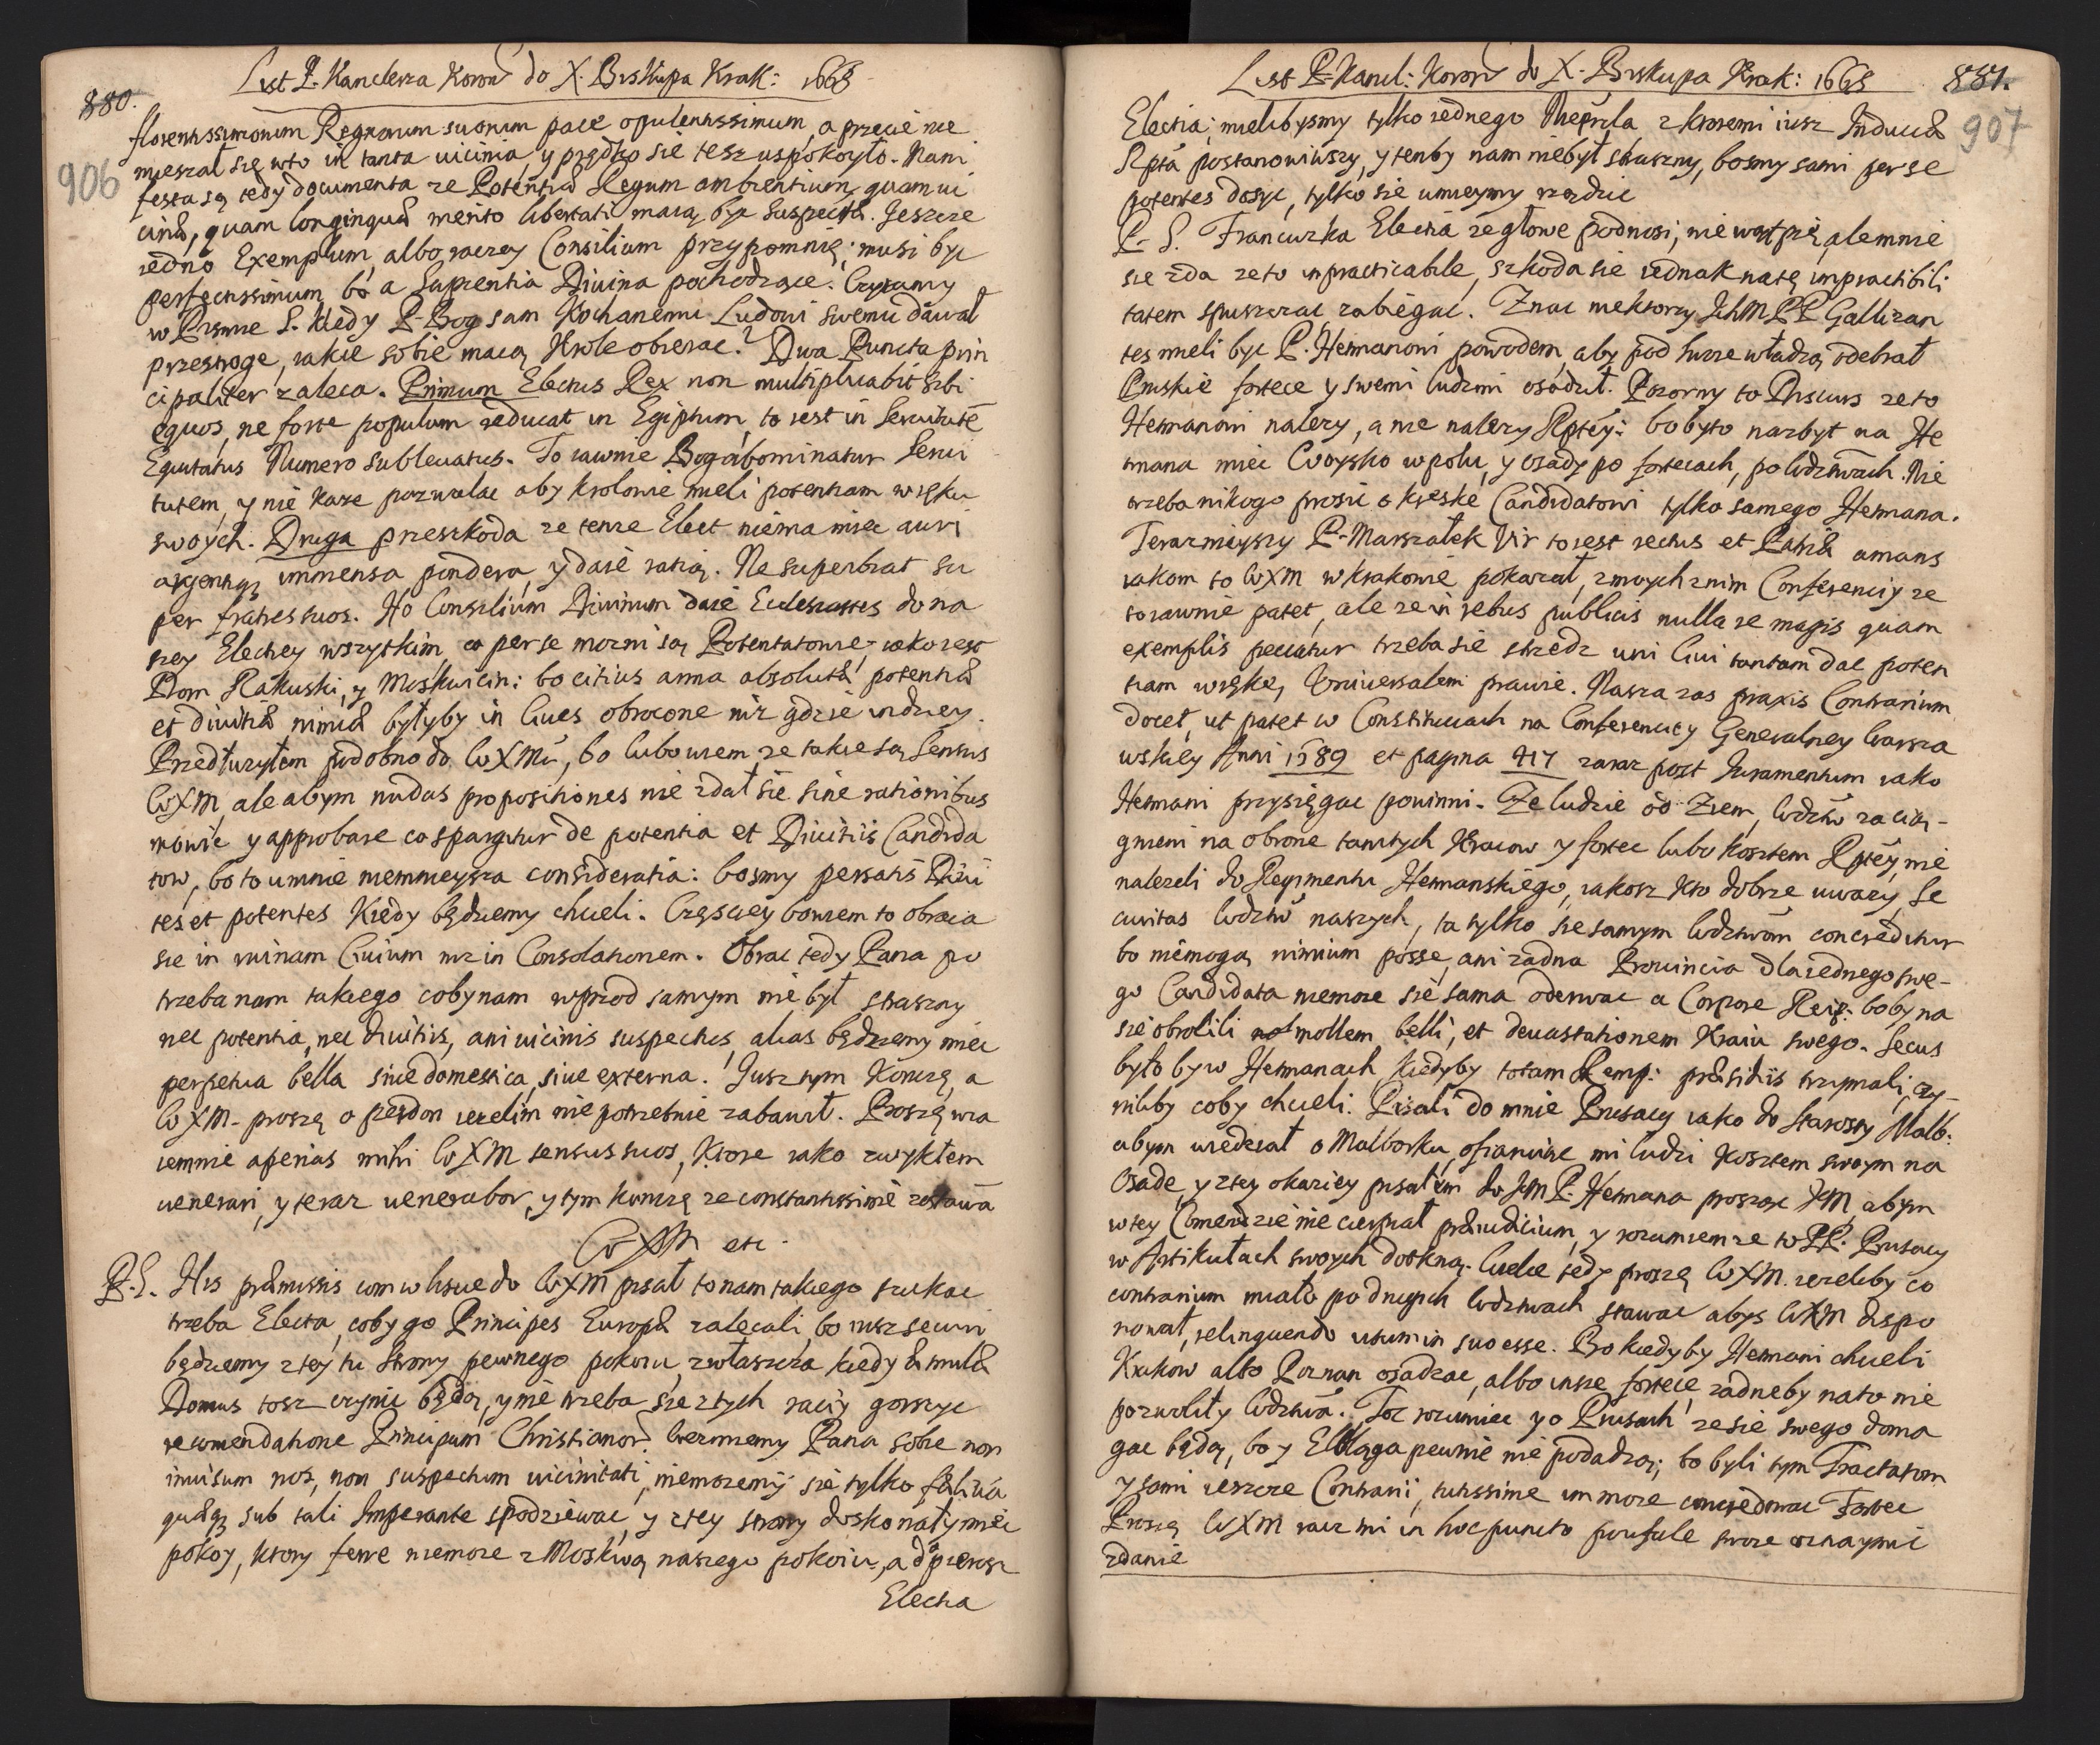 List P. Kanclerza Koron do X. Biskupa Krak: 1668
880.
906
florentissimorum Regnorum suorum pace opulentissimum, a przecie nie
mieszał się wto in tanta uicinia, y prędko sie tesz uspokoyło. Mani
festa są tedy documenta ze Potentia Regum ambientium, quam ui
cina, quam longinqua merito libertati maią byc suspecta. Jeszcze
iedno Exemplum, albo raczey Consilium przypomnię; musi byc
perfectissimum, bo a Sapientia Diuina pochodzące. Czytamy
w Pismie S. kiedy P. Bog sam Kochanemu Ludowi swemu dawał
przestrogę, iakie sobie maią Krole obierac? Dwa Puncta prin
cipaliter zaleca. Primum Electus Rex non multiplicabit sibi
equos, ne forte populum reducat in Egiptum, to iest in Seruitute
Equitatus Numero subleuatus. To iawnie Bog abominatur Serui
tutem, y nie kaze pozwalac aby krolowie mieli potentiam w ręku
swoych. Druga przeszkoda ze tenze Elect niema miec auri
argentiq immensa pondera, y daie ratią. Ne superbiat su
per fratres suos. Ho Consilium Diuinum daie Ecclesiastes do na
szey Elekcyey wszytkim, co per se mozni są Potentatowie, iako iest
Dom Rakuski, y Moskwicin: bo citius arma absoluta potentia
et diuitia nimia byłyby in Ciues obrocone niz gdzie indziey.
Przedłuzyłem podobno do WXMi, bo lubo wiem, ze takie są Sensus
WXM, ale abym nudas propositiones nie zdał sie sine rationibus
mowic y approbare co spargitur de potentia et Diuitiis Candida
tow, bo to u mnie niemnieysza consideratia: bosmy persatis Diui
tes et potentes kiedy będziemy chcieli. Częsciey bowiem to obraca
sie in ruinam Ciuium niz in Consolationem. Obrac tedy Pana po
trzeba nam takiego coby nam wprzod samym nie był straszny
nec potentia, nec diuitiis, ani uicinis suspectus, alias będziemy miec
perpetua bella siue domestica, siue externa. Jusz tym Konczę, a
WXM. proszę o perdon iezelim nie potrzebnie zabawił. Proszę wza
iemnie aperias mihi WXM sensus suos, Ktore iako zwykłem
uenerari, y teraz uenerabor, y tym koncze ze constantissime zostawa
WXM etc.
P.S. His praemissis com w liscie do WXM pisał to nam takiego szukac
trzeba Electa, coby go Principes Europa zalecali, bo iusz securi
będziemy z tey tu strony pewnego pokoiu, zwłaszcza kiedy aemula
Domus tosz czynic będą, y nie trzeba sie z tych raciy gorszyc
recomendatione Principum Christianor. Wezmiemy Pana sobie non
inuisum nos, non suspectum uicinitati, niemozemy sie tylko faelicia
quaeq sub tali Imperante spodziewac, y z tey strony doskonały miec
pokoy, ktory ferre niemoze z Moskwą naszego pokoiu, a dopierosz
Electia
List P. Kancl: Koron do X. Biskupa Krak: 1668
881.
907
Electia; mielibysmy tylko iednego Nieprzla, z ktoremi iusz Inducia
Rpta postanowiwszy, y tenby nam niebył straszny, bosmy sami per se
potentes dosyc, tylko sie umieymy rządzic
P. S. Francuzka Electia ze głowe podnosi, nie wątpię, ale mnie
sie zda ze to inpracticabile, szkoda sie iednak na tę impractibili
tatem spuszczac zabiegac. Znac niektorzy IchM PP Gallizan
tes mieli byc P. Hetmanowi powodem, aby pod swoie władzą odebrał
Pruskie fortece y swemi ludzmi osadził. Pozorny to Discurs ze to
Hetmanowi nalezy, a nie nalezy Rptey: bo było nazbyt na He
tmana miec Woysko w polu, y osady po fortecach, po Wdztwach. Nie
trzeba nikogo prosic o kreskę Candidatowi tylko samego Hetmana.
Terazmieyszy P. Marszałek Vir to iest rectus et Patria amans
iakom to WXM w krakowie pokazał, z moych z nim Conferenciy ze
to iawnie patet, ale ze in rebus publicis nulla re magis quam
exemplis peccatur trzeba sie strzedz uni Ciui tantam dac poten
tiam w rękę, Uniuersalem prawie. Nasza zas praxis Contrarium
docet, ut patet w Constituciach na Conferenciey Generalney Warsza
wskiey Anni 1589 et pagina 417 zaraz post Juramentum iako
Hetmani przysięgac powinni. Ze ludzie od Ziem, Wdztw zacią-
gnieni na obrone tamtych Kraiow y fortec lubo kosztem Rptey, nie
nalezeli do Regimentu Hetmanskiego, iakosz kto dobrze uwazy, Se
curitas Wdztw naszych, ta tylko sie samym Wdztwom concreditur
bo niemogą nimium posse, ani zadna Prouincia dla iednego swe-
go Candidata niemoze sie sama oderwac a Corpore Reip: boby na
sie obrolili molem belli, et deuastationem Kraiu swego. Secus
było by w Hetmanach kiedyby totam Remp: praesidiis trzymali, czy-
niliby coby chcieli. Pisali do mnie Prusacy iako do Starosty Malb:
abym wiedział o Malborku, ofiaruiąc mi ludzi kosztem swoym na
Osade, y z tey okaziey pisałem do JeM P. Hetmana prosząc JeM, abym
w tey Comendzie nie cierpiał praeiudicium, y rozumiem ze to PP. Prusacy
w Artikułach swoych dotkną. Wielce tedy proszę WXM. iezeliby co
contrarium miało po drugych Wdztwach stawac abys WXM dispo
nował, relinquendo usum in suo esse. Bo kiedyby Hetmani chcieli
Krakow albo Poznan osadzac, albo insze fortece, zadneby na to nie
pozwoliły Wdztwa. Toz rozumiec y o Prusach ze sie swego doma
gac będą, bo y Elbląga pewnie nie podadzą; bo byli tym Tractatom
y sami ieszcze Contrarii, tutissime im moze concredowac Fortec
Proszę WXM racz mi in hoc puncto poufale swoie oznaymic
zdanie